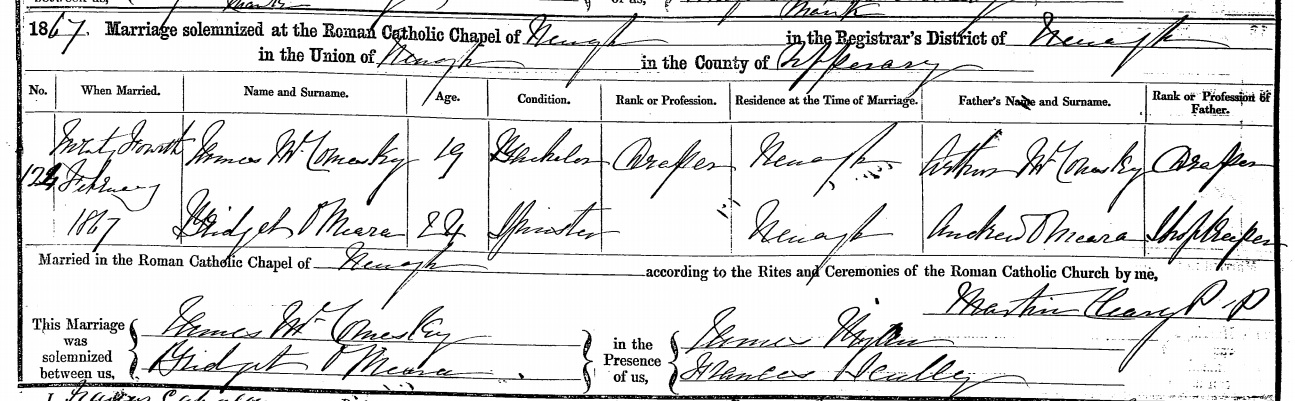 1867. Marriage solemnized at the Roman Catholic Chapel of Nenagh in the Registrar's District of Nenagh
in the Union of Nenagh in the County of Tipperary
No. When Married. Name and Surname. Age. Condition. Rank or Profession. Residence at the Time of Marriage. Father's Name and Surname. Rank or Profession of Father.
124 Fourth February 1867 James McComesky 19 Bachelor Draper Nenagh Arthur McComesky Draper
Bridget O'Meara 24 Spinster Nenagh Andrew O'Meara Shopkeeper
Married in the Roman Catholic Chapel of Nenagh according to the Rites and Ceremonies of the Roman Catholic Church by me,
Martin Cleary P.P
This Marriage was solemnized between us, James McComesky
Bridget O'Meara
in the Presence of us, James
Frances Scully